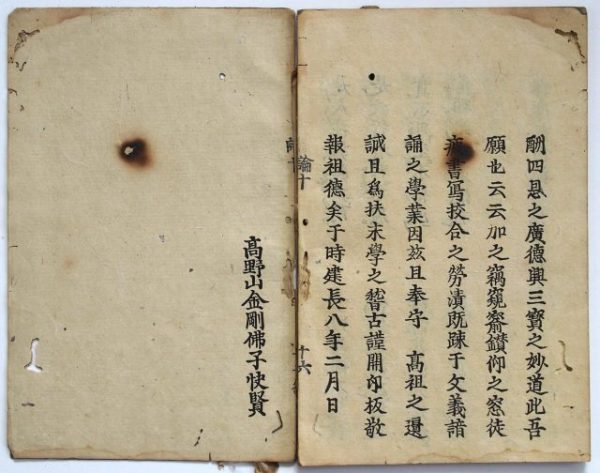 酬四恩之廣德興三寶之妙道此吾
願也云云加之竊窺齋鑚仰之窓徒
書寫挍合之勞漬既踈于文義諳
誦之學業因茲且奉守　高祖之遺
誡且爲扶末學之稽古謹開印板敬
報祖德矣于時建長八年二月日
論十　十六
高野山金剛佛子快賢